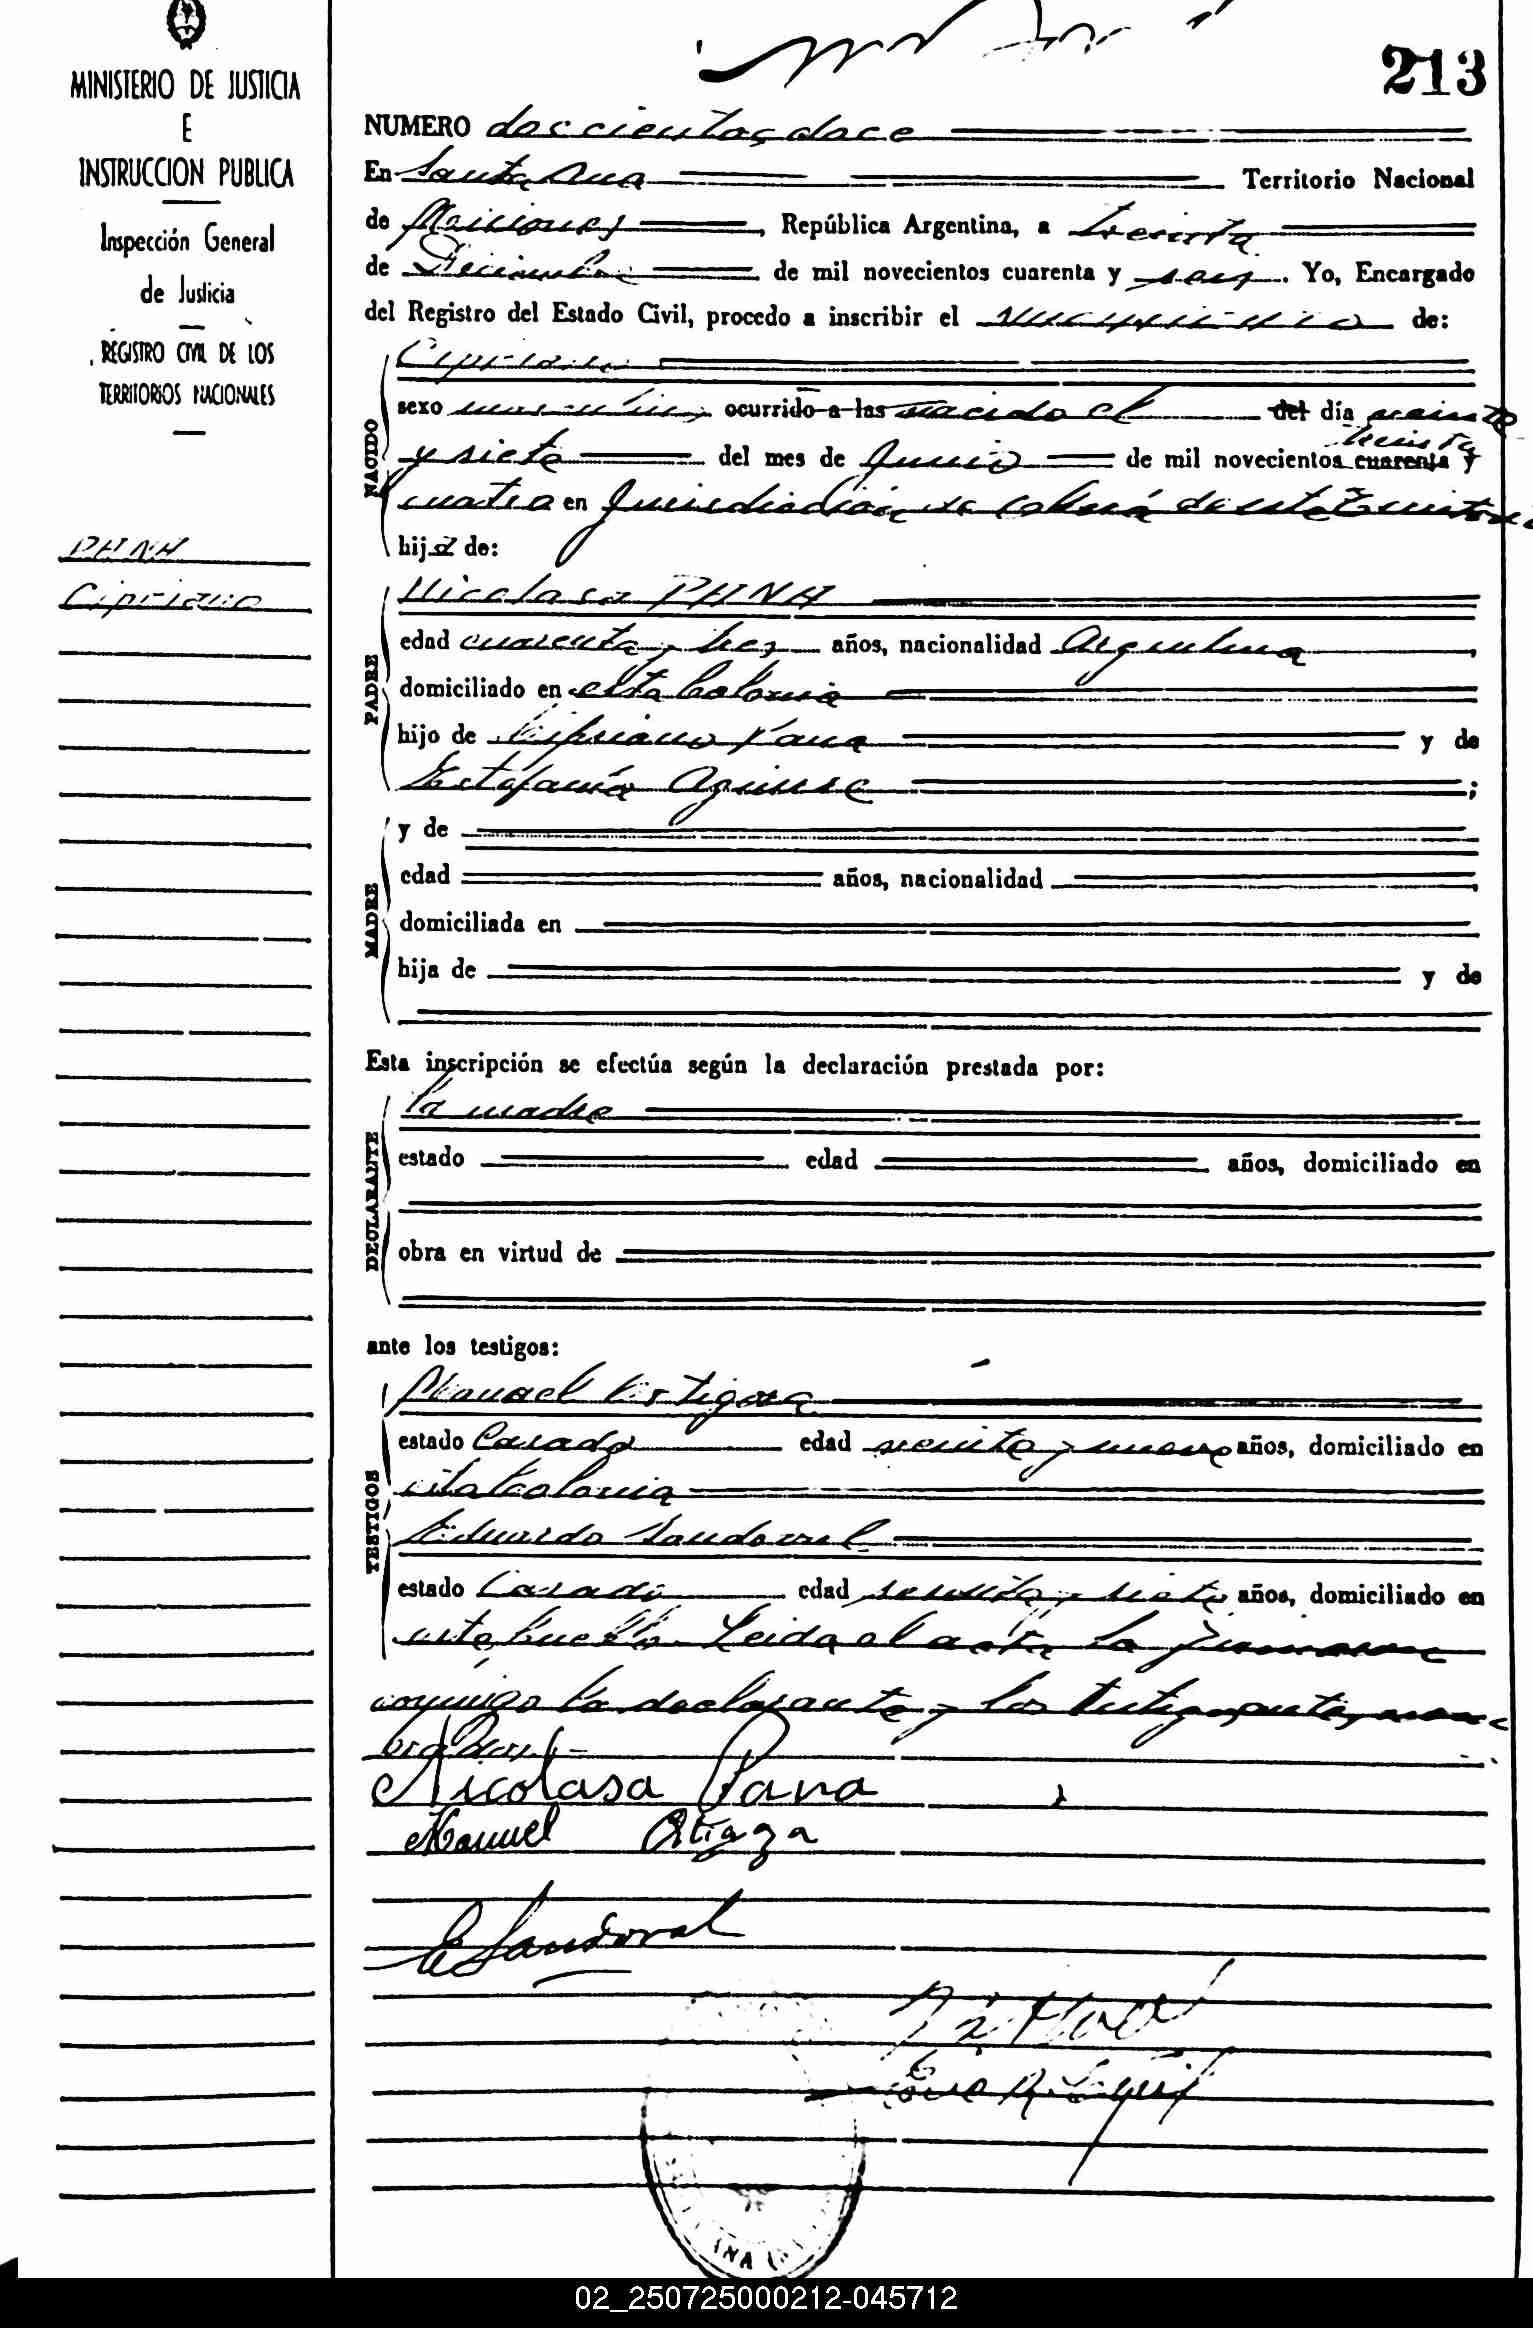 213
MINISTERIO DE JUSTICIA
E
INSTRUCCION PUBLICA
Inspección General
de Justicia
REGISTRO CIVIL DE LOS
TERRITORIOS NACIONALES
PANA
Cipriano
NUMERO doscientos doce
En Santa Ana Territorio Nacional
de Misiones, República Argentina, a treinta
de Diciembre de mil novecientos cuarenta y seis. Yo, Encargado
del Registro del Estado Civil, procedo a inscribir el nacimiento de:
NACIDO
Cipriano
sexo masculino ocurrido a las nacido el del día veinte
treinta
y siete del mes de Junio de mil novecientos cuarenta y
cuatro en Jurisdicción de de este Territorio
hijo de:
PADRE
Nicolasa PANA
edad cuarenta y tres años, nacionalidad Argentina,
domiciliado en esta Colonia
hijo de Cipriano Pana y de
Estefanía Aguirre;
MADRE
y de
edad años, nacionalidad
domiciliada en
hija de y de
Esta inscripción se efectúa según la declaración prestada por:
DECLARANTE
la madre
estado edad años, domiciliado en
obra en virtud de
ante los testigos:
TESTIGOS
Manuel Ortigoza
estado Casado edad y nueve años, domiciliado en
esta Colonia
Eduardo Sandoval
estado Casado edad y siete años, domiciliado en
este pueblo. Leida el acta la firmaron
conmigo la declarante y los testigos
Nicolasa Pana
Manuel Ortigoza
E Sandoval
02_250725000212-045712